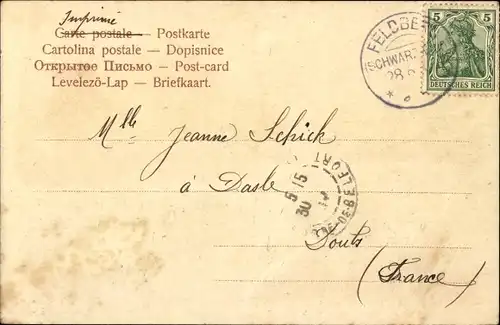 Imprimé
Carte postale — Postkarte
Cartolina postale — Dopisnice
Открытое Письмо — Post-card
Levelező-Lap — Briefkaart.
FELDBE
(SCHWARZ
28.
5 5
DEUTSCHES REICH
Mlle Jeanne Schick
à Dasle
5 15
30
BELFORT
Doubs
(France)